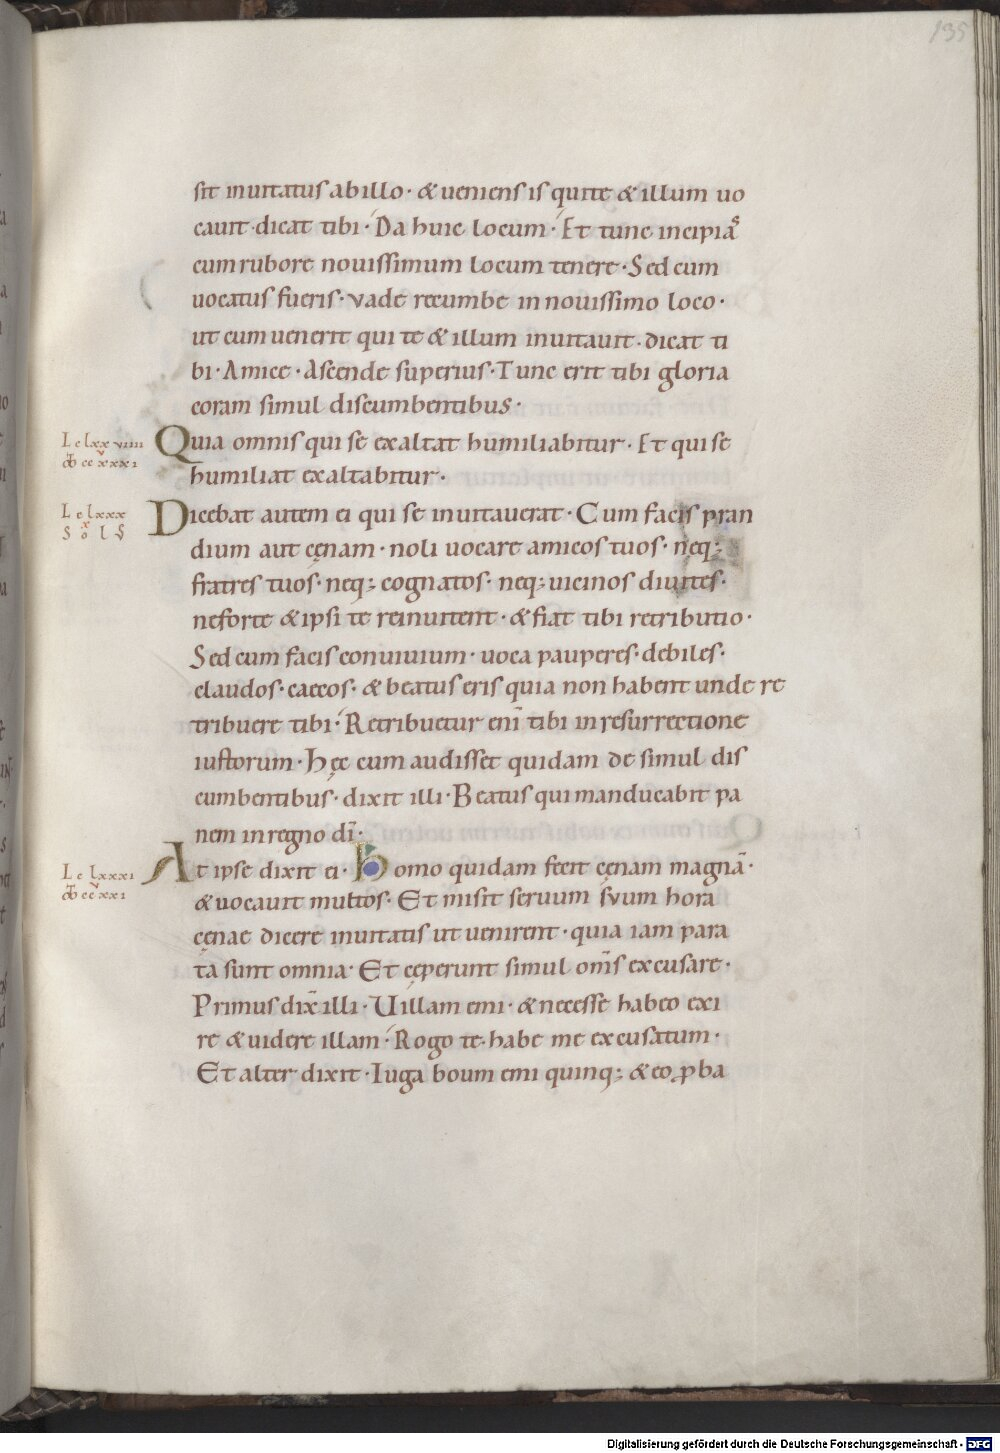 135
sit inuitatus ab illo · & ueniens is qui te & illum uo
cauit · dicat tibi · Da huic locum · Et tunc incipiaſ
cum rubore nouissimum locum tenere · Sed cum
uocatus fueris · vade recumbe in nouissimo loco ·
ut cum uenerit qui te & illum inuitauit · dicat ti
bi · Amice · Ascende superius · Tunc erit tibi gloria
coram simul discumbentibus ·
Lc lxxviiii
Quia omnis qui se exaltat humiliabitur · Et qui se
humiliat exaltabitur ·
Lc lxxx
Dicebat autem ei qui se inuitauerat · Cum facis pran
dium aut cęnam · noli uocare amicos tuos · neq;
fratres tuos · neq; cognatos · neq; uicinos diuites ·
neforte & ipsi te reinuitent · & fiat tibi retributio ·
Sed cum facis conuiuium · uoca pauperes · debiles ·
claudos · caecos · & beatus eris quia non habent unde re
tribuere tibi · Retribuetur enī tibi in resurrectione
iustorum · hęc cum audisset quidam de simul dis
cumbentibus · dixit illi · Beatus qui manducabit pa
nem in regno dī ·
Lc lxxxi
At ipse dixit ei · Homo quidam fecit cęnam magnā ·
& uocauit multos · Et misit seruum suum hora
cęnae dicere inuitatis ut uenirent · quia iam para
ta sunt omnia · Et cęperunt simul om̄s excusare ·
Primus dix̄ illi · Uillam emi · & necesse habeo exi
re & uidere illam · Rogo te · habe me excusatum ·
Et alter dixit · Iuga boum emi quinq; & eo ꝓba
Digitalisierung gefördert durch die Deutsche Forschungsgemeinschaft - DFG